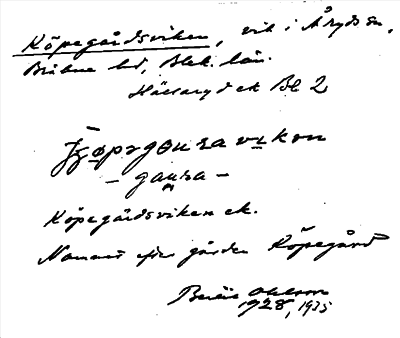 Köpegårdsviken, vik i Åryds sn,
Bräkne hd, Blek. län.
Hällaryd ek Bl 2
vikon
- gausa -
Köpegårdsviken ek.
Namnet efter gården Köpegård
Bertil Ohlsson
1928, 1935